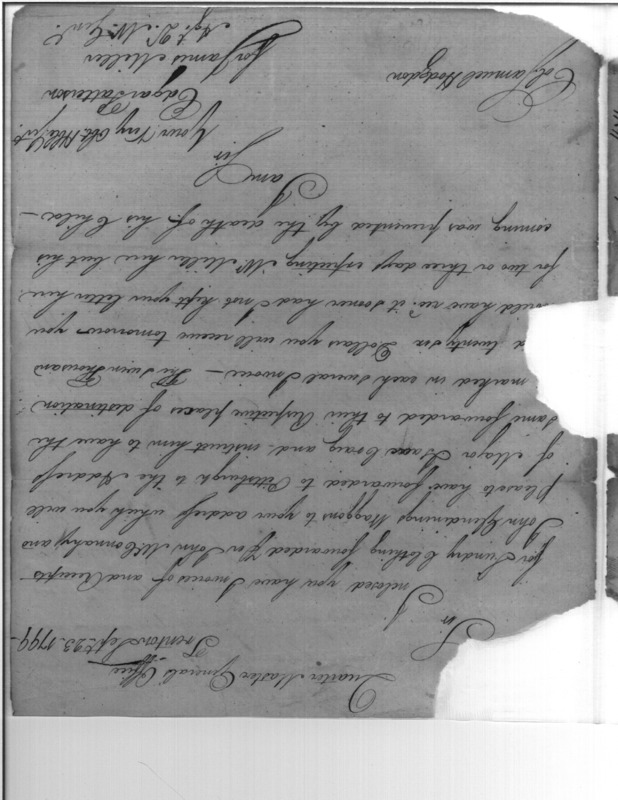 Quarter Master General's Office
Trenton Sept. 23. 1799.
Sir
Inclosed you have Invoices of and Receipts
for Sundry Clothing forwarded Per John McConnahy and
John Glendinings Waggons to your address which you will
please to have forwarded to Pittsburgh to the Address
of Major Isaac Craig and instruct him to have the
same forwarded to their Respective places of destination
marked in each several Invoice — The Seven Thousand
d twenty Six Dollars you will receive tomorrow you
would have recd. it sooner had I not kept your letter here
for two or three days expecting Mr Miller here but his
coming was prevented by the death of his Child —
I am
Sir
Your Very Obt. Hble
Edgar Patterson
for James Miller
Col. Samuel Hodgdon